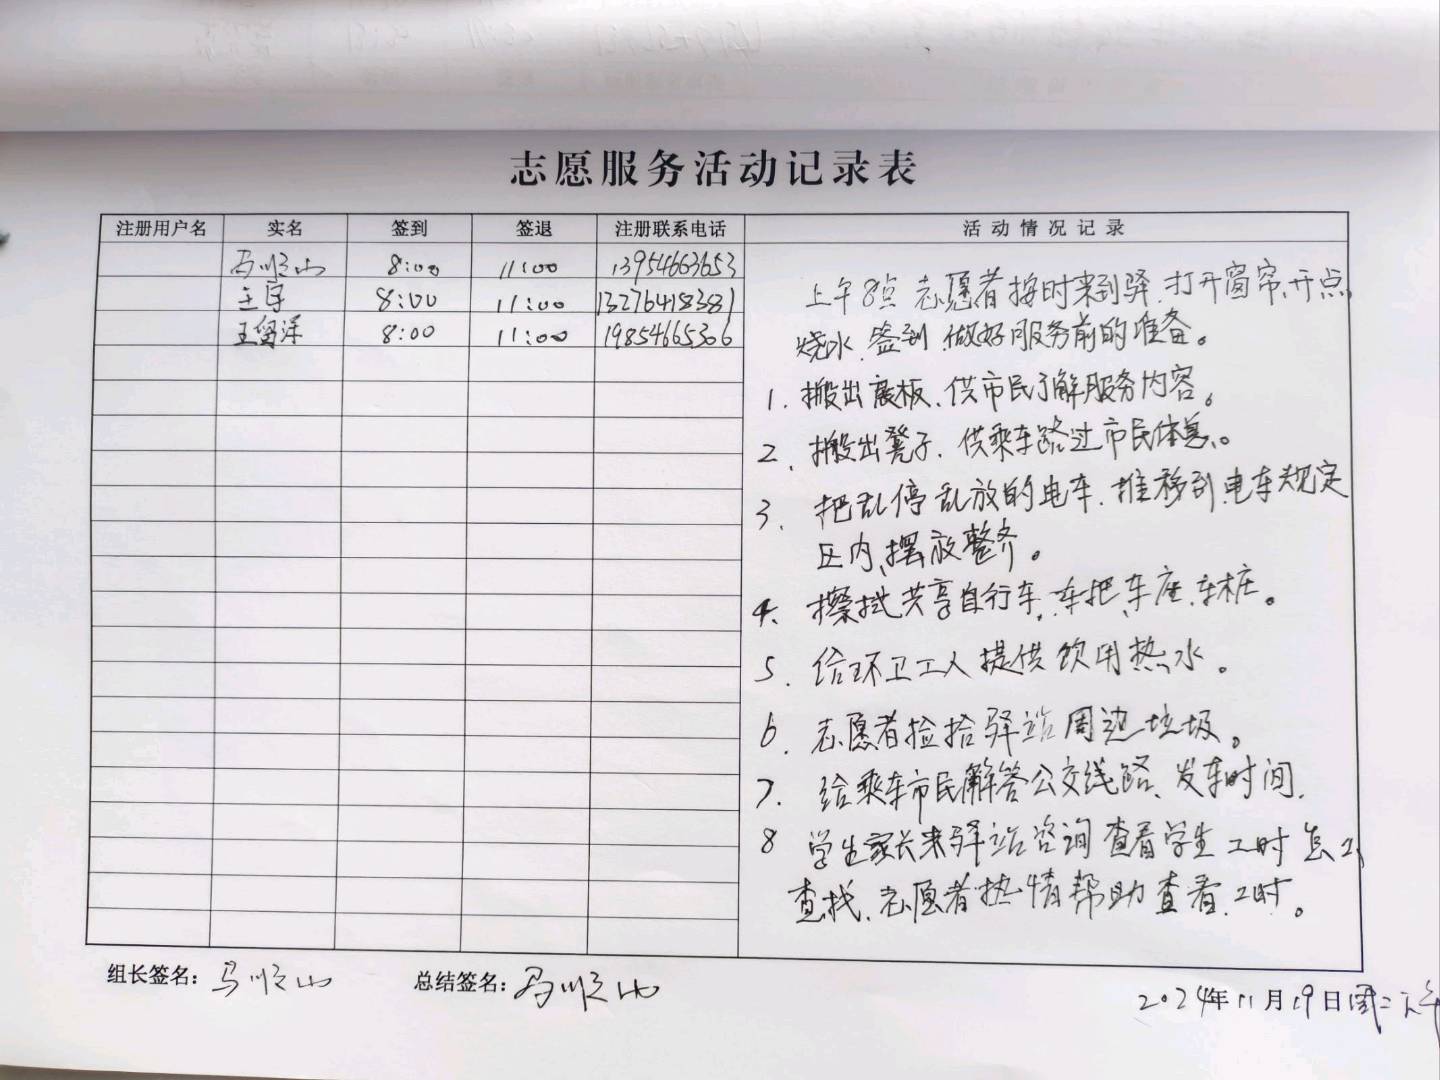 志愿服务活动记录表
注册用户名 实名 签到 签退 注册联系电话 活动情况记录
马顺山 8:00 11:00 13954663653
王宇 8:00 11:00 13276418381
王留洋 8:00 11:00 19854665306
上午8点志愿者按时来到驿、打开窗帘、开点、
烧水、签到、做好服务前的准备。
1、搬出展板、供市民了解服务内容。
2、搬出凳子、供乘车路过市民休息。
3、把乱停乱放的电车、推移到电车规定
区内、摆放整齐。
4、擦拭共享自行车、车把、车座、车桩。
5、给环卫工人提供饮用热水。
6、志愿者捡拾驿站周边垃圾。
7、给乘车市民解答公交线路、发车时间、
8 学生家长来驿站咨询查看学生工时怎
查找、志愿者热情帮助查看工时。
组长签名：马顺山 总结签名：马顺山
2024年11月19日周二